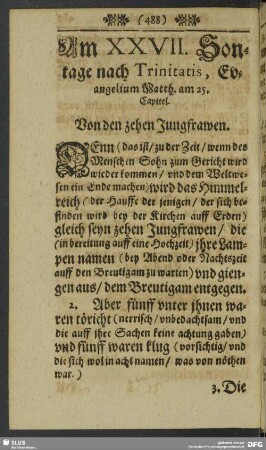 (488)
Am XXVII. Son-
tage nach Trinitatis, Ev-
angelium Matth. am 25.
Capitel.
Von den zehen Jungfrawen.
DEnn (das ist / zu der Zeit / wenn des
Menschen Sohn zum Gericht wird
wieder kommen / vnd dem Weltwe-
sen ein Ende machen) wird das Himmel-
reich (der Hauffe der jenigen / der sich be-
finden wird bey der Kirchen auff Erden)
gleich seyn zehen Jungfrawen / die
(in bereitung auff eine Hochzeit) jhre Lam-
pen namen (bey Abend oder Nachtszeit
auff den Breutigam zu warten) vnd gien-
gen aus / dem Breutigam entgegen.
2. Aber fünff vnter jhnen wa-
ren töricht (nerrisch / vnbedachtsam / vnd
die auff jhre Sachen keine achtung gaben)
vnd fünff waren klug (vorsichtig / vnd
die sich wol in acht namen / was von nöthen
war.)
3. Die
SLUB